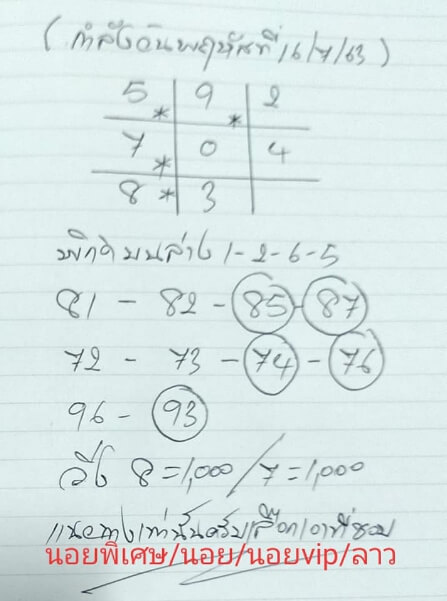 (กำลังวันพฤหัสที่ 16/7/63)
5 * 9 * 2
7 * 0 4
8 * 3
บนล่าง 1-2-6-5
81 - 82 - 85 - 87
72 - 73 - 74 - 76
96 - 93
วิ่ง 8=1,000/7=1,000
แนวทางเท่านั้นครับเลือกเอาที่ชอบ
นอยพิเศษ/นอย/นอยvip/ลาว